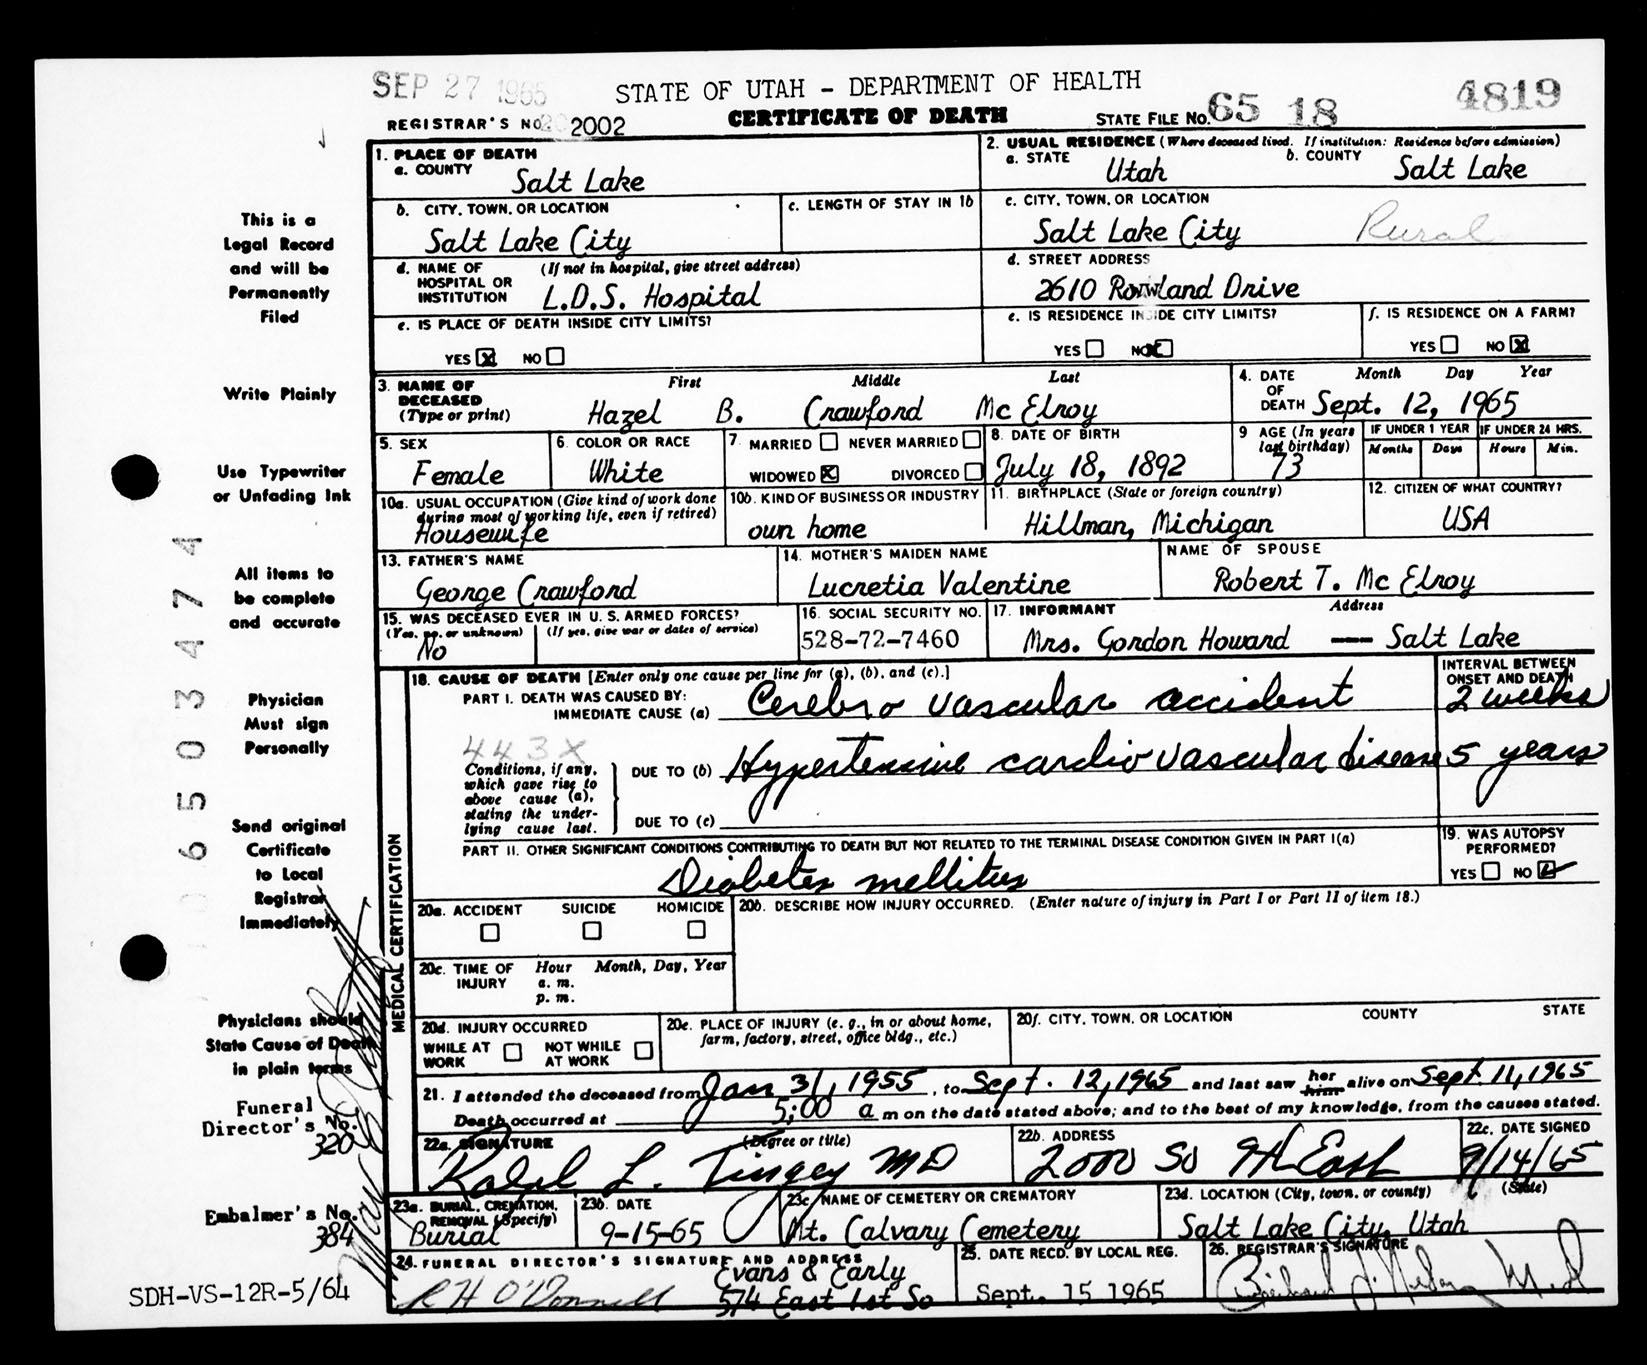 SEP 27 1965
STATE OF UTAH - DEPARTMENT OF HEALTH
4819
REGISTRAR'S NO. 2002
CERTIFICATE OF DEATH
STATE FILE NO. 65 18
1. PLACE OF DEATH
a. COUNTY Salt Lake
2. USUAL RESIDENCE (Where deceased lived. If institution: Residence before admission)
a. STATE Utah b. COUNTY Salt Lake
b. CITY, TOWN, OR LOCATION Salt Lake City
c. LENGTH OF STAY IN 1b
c. CITY, TOWN, OR LOCATION Salt Lake City Rural
d. NAME OF HOSPITAL OR INSTITUTION (If not in hospital, give street address) L.D.S. Hospital
d. STREET ADDRESS
2610 Rowland Drive
e. IS PLACE OF DEATH INSIDE CITY LIMITS?
YES X NO
e. IS RESIDENCE INSIDE CITY LIMITS?
YES NO X
f. IS RESIDENCE ON A FARM?
YES NO X
3. NAME OF DECEASED (Type or print)
First Middle Last
Hazel B. Crawford Mc Elroy
4. DATE OF DEATH Month Day Year
Sept. 12, 1965
5. SEX Female
6. COLOR OR RACE White
7. MARRIED NEVER MARRIED
WIDOWED X DIVORCED
8. DATE OF BIRTH July 18, 1892
9 AGE (In years last birthday) 73
IF UNDER 1 YEAR Months Days
IF UNDER 24 HRS. Hours Min.
10a. USUAL OCCUPATION (Give kind of work done during most of working life, even if retired) Housewife
10b. KIND OF BUSINESS OR INDUSTRY own home
11. BIRTHPLACE (State or foreign country) Hillman, Michigan
12. CITIZEN OF WHAT COUNTRY? USA
13. FATHER'S NAME George Crawford
14. MOTHER'S MAIDEN NAME Lucretia Valentine
NAME OF SPOUSE Robert T. Mc Elroy
15. WAS DECEASED EVER IN U.S. ARMED FORCES?
(Yes, no, or unknown) (If yes, give war or dates of service)
No
16. SOCIAL SECURITY NO. 528-72-7460
17. INFORMANT Address
Mrs. Gordon Howard — Salt Lake
18. CAUSE OF DEATH [Enter only one cause per line for (a), (b), and (c).]
INTERVAL BETWEEN ONSET AND DEATH
PART I. DEATH WAS CAUSED BY:
IMMEDIATE CAUSE (a) Cerebro vascular accident 2 weeks
443X
Conditions, if any, which gave rise to above cause (a), stating the underlying cause last.
DUE TO (b) Hypertensive cardio vascular disease 5 years
DUE TO (c)
PART II. OTHER SIGNIFICANT CONDITIONS CONTRIBUTING TO DEATH BUT NOT RELATED TO THE TERMINAL DISEASE CONDITION GIVEN IN PART I(a)
Diabetes mellitus
19. WAS AUTOPSY PERFORMED?
YES NO
20a. ACCIDENT SUICIDE HOMICIDE
20b. DESCRIBE HOW INJURY OCCURRED. (Enter nature of injury in Part I or Part II of item 18.)
20c. TIME OF INJURY Hour Month, Day, Year
a. m.
p. m.
20d. INJURY OCCURRED
WHILE AT WORK NOT WHILE AT WORK
20e. PLACE OF INJURY (e. g., in or about home, farm, factory, street, office bldg., etc.)
20f. CITY, TOWN, OR LOCATION COUNTY STATE
21. I attended the deceased from Jan 31, 1955, to Sept. 12, 1965 and last saw her him alive on Sept. 11, 1965
Death occurred at 5:00 a m on the date stated above; and to the best of my knowledge, from the causes stated.
22a. SIGNATURE (Degree or title)
Ralph L. Tingey MD
22b. ADDRESS
2000 So 9th East
22c. DATE SIGNED
9/14/65
23a. BURIAL, CREMATION, REMOVAL (Specify) Burial
23b. DATE 9-15-65
23c NAME OF CEMETERY OR CREMATORY Mt. Calvary Cemetery
23d. LOCATION (City, town, or county) (State)
Salt Lake City, Utah
24. FUNERAL DIRECTOR'S SIGNATURE AND ADDRESS
R H O'Donnell
Evans & Early
574 East 1st So
25. DATE RECD. BY LOCAL REG.
Sept. 15 1965
26. REGISTRAR'S SIGNATURE
MEDICAL CERTIFICATION
This is a
Legal Record
and will be
Permanently
Filed
Write Plainly
Use Typewriter
or Unfading Ink
All items to
be complete
and accurate
Physician
Must sign
Personally
Send original
Certificate
to Local
Registrar
Immediately
Physicians should
State Cause of Death
in plain terms
Funeral
Director's No.
320
Embalmer's No.
384
SDH-VS-12R-5/64
0 6 5 0 3 4 7 4